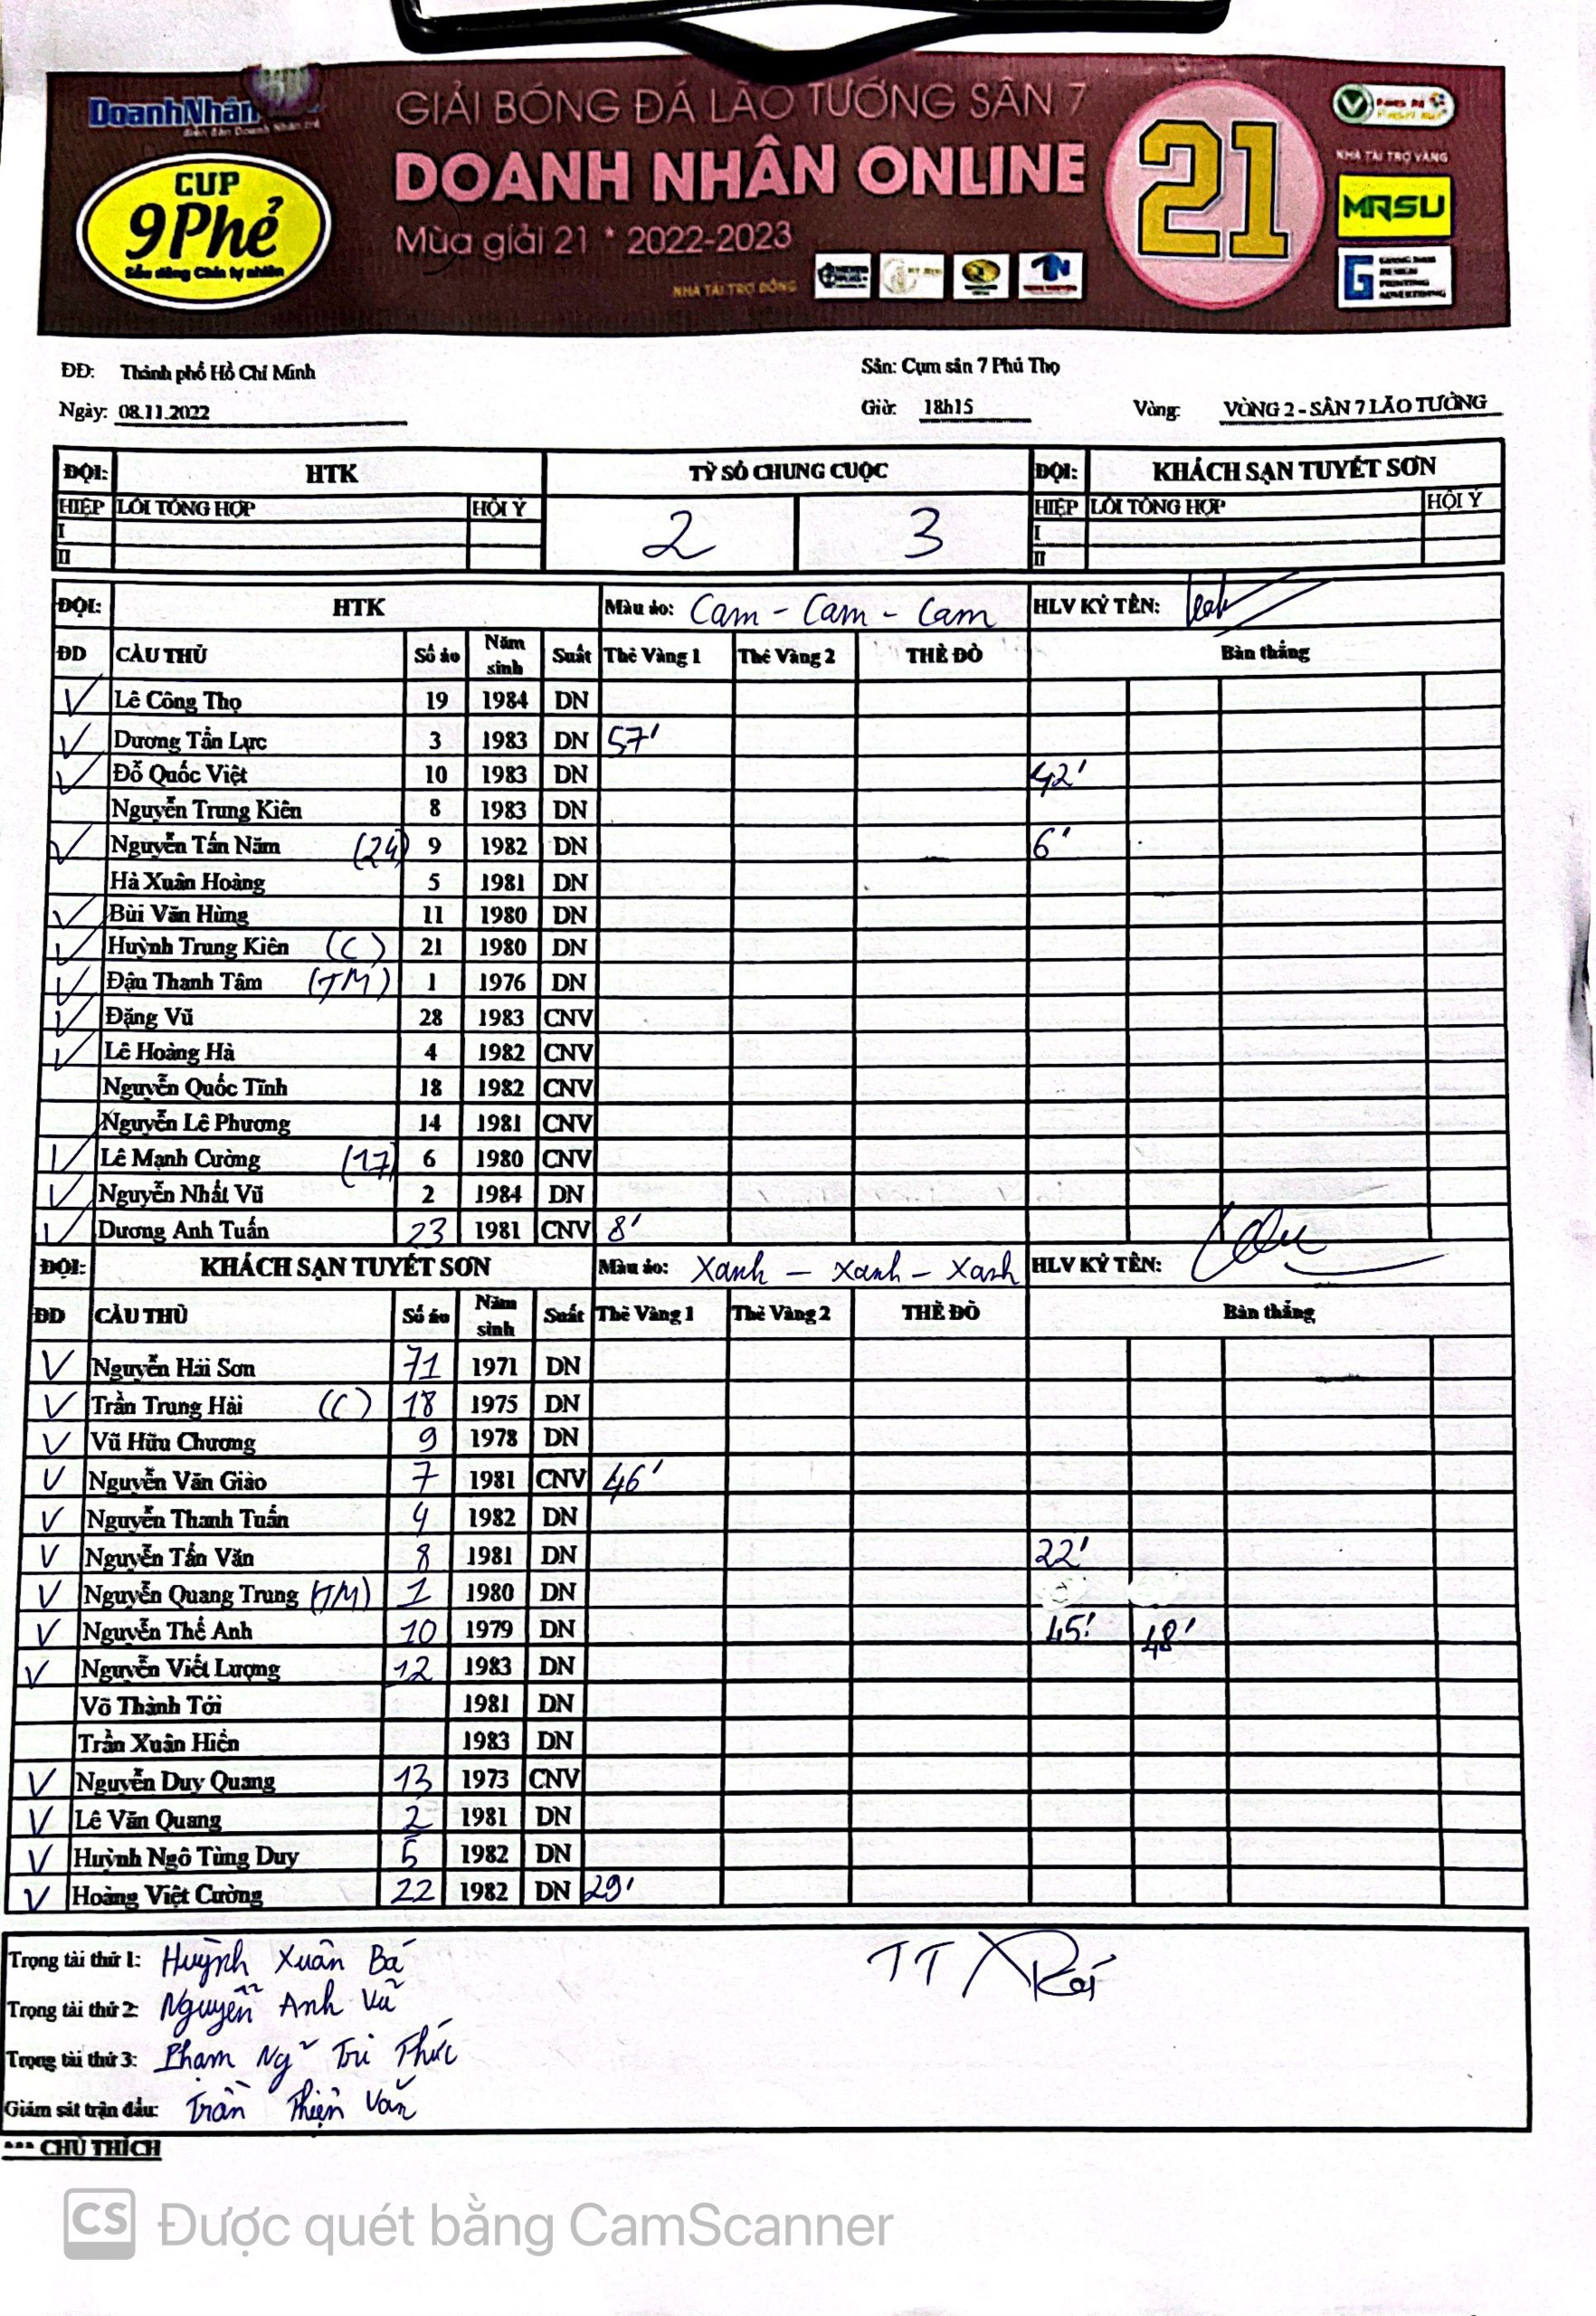 DoanhNhân
diễn đàn Doanh Nhân trẻ
CUP
9Phẻ
Sầu riêng Chín tự nhiên
GIẢI BÓNG ĐÁ LÃO TƯỚNG SÂN 7
DOANH NHÂN ONLINE
Mùa giải 21 * 2022-2023
NHÀ TÀI TRỢ ĐỒNG
21
NHÀ TÀI TRỢ VÀNG
MRSU
ĐĐ: Thành phố Hồ Chí Minh Sân: Cụm sân 7 Phú Thọ
Ngày: 08.11.2022 Giờ: 18h15 Vòng: VÒNG 2 - SÂN 7 LÃO TƯỚNG
ĐỘI: HTK TỶ SỐ CHUNG CUỘC ĐỘI: KHÁCH SẠN TUYẾT SƠN
HIỆP LỖI TỔNG HỢP HỘI Ý 2 3 HIỆP LỖI TỔNG HỢP HỘI Ý
I I
II II
ĐỘI: HTK Màu áo: Cam - Cam - Cam HLV KÝ TÊN:
ĐD CẦU THỦ Số áo Năm sinh Suất Thẻ Vàng 1 Thẻ Vàng 2 THẺ ĐỎ Bàn thắng
V Lê Công Thọ 19 1984 DN
V Dương Tấn Lực 3 1983 DN 57'
V Đỗ Quốc Việt 10 1983 DN 42'
Nguyễn Trung Kiên 8 1983 DN
V Nguyễn Tấn Năm (24) 9 1982 DN 6'
Hà Xuân Hoàng 5 1981 DN
V Bùi Văn Hùng 11 1980 DN
V Huỳnh Trung Kiên (C) 21 1980 DN
V Đậu Thanh Tâm (TM) 1 1976 DN
V Đặng Vũ 28 1983 CNV
V Lê Hoàng Hà 4 1982 CNV
Nguyễn Quốc Tĩnh 18 1982 CNV
Nguyễn Lê Phương 14 1981 CNV
V Lê Mạnh Cường (17) 6 1980 CNV
V Nguyễn Nhất Vũ 2 1984 DN
V Dương Anh Tuấn 23 1981 CNV 8'
ĐỘI: KHÁCH SẠN TUYẾT SƠN Màu áo: Xanh - Xanh - Xanh HLV KÝ TÊN:
ĐD CẦU THỦ Số áo Năm sinh Suất Thẻ Vàng 1 Thẻ Vàng 2 THẺ ĐỎ Bàn thắng
V Nguyễn Hải Sơn 71 1971 DN
V Trần Trung Hải (C) 18 1975 DN
V Vũ Hữu Chương 9 1978 DN
V Nguyễn Văn Giào 7 1981 CNV 46'
V Nguyễn Thanh Tuấn 4 1982 DN
V Nguyễn Tấn Văn 8 1981 DN 22'
V Nguyễn Quang Trung (TM) 1 1980 DN
V Nguyễn Thế Anh 10 1979 DN 45' 48'
V Nguyễn Viết Lượng 12 1983 DN
Võ Thành Tới 1981 DN
Trần Xuân Hiền 1983 DN
V Nguyễn Duy Quang 13 1973 CNV
V Lê Văn Quang 2 1981 DN
V Huỳnh Ngô Tùng Duy 5 1982 DN
V Hoàng Việt Cường 22 1982 DN 29'
Trọng tài thứ 1: Huỳnh Xuân Bá TT
Trọng tài thứ 2: Nguyễn Anh Vũ
Trọng tài thứ 3: Phạm Ngũ Tri Thức
Giám sát trận đấu: Trần Thiện Văn
*** CHÚ THÍCH
CS Được quét bằng CamScanner